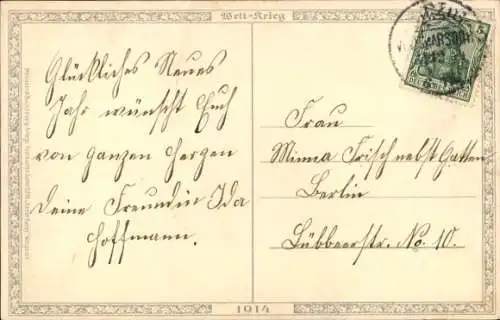 Welt-Krieg
Glückliches Neues
Jahr wünscht Euch
von ganzen Herzen
Deine Freundin Ida
Hoffmann.
Frau
Minna Frisch nebst Gatten
Berlin
Lübbenerstr. No. 10.
1914